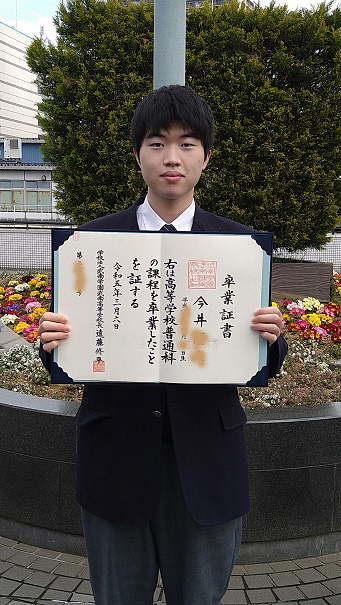 卒業証書
今井
平
日生
右は高等学校普通科
の課程を卒業したこと
を証する
令和五年三月六日
学校法人武南学園武南高等学校長 遠藤修平
第
号